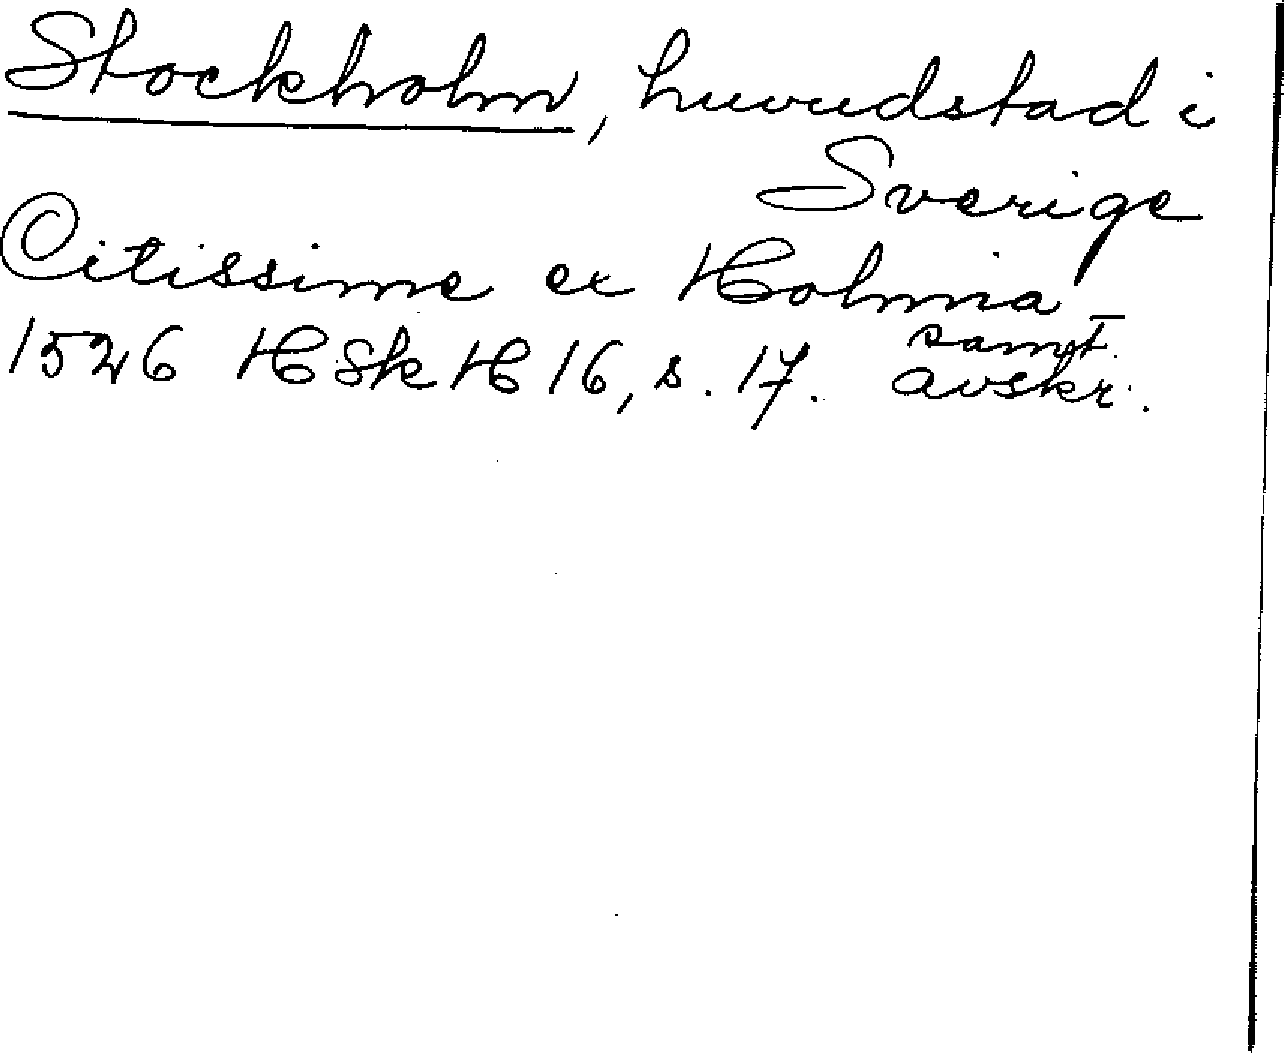 Stockholm, huvudstad i
Sverige
Citissime ex Holmia
1526 HSkH 16, s. 17. samt.
avskr.